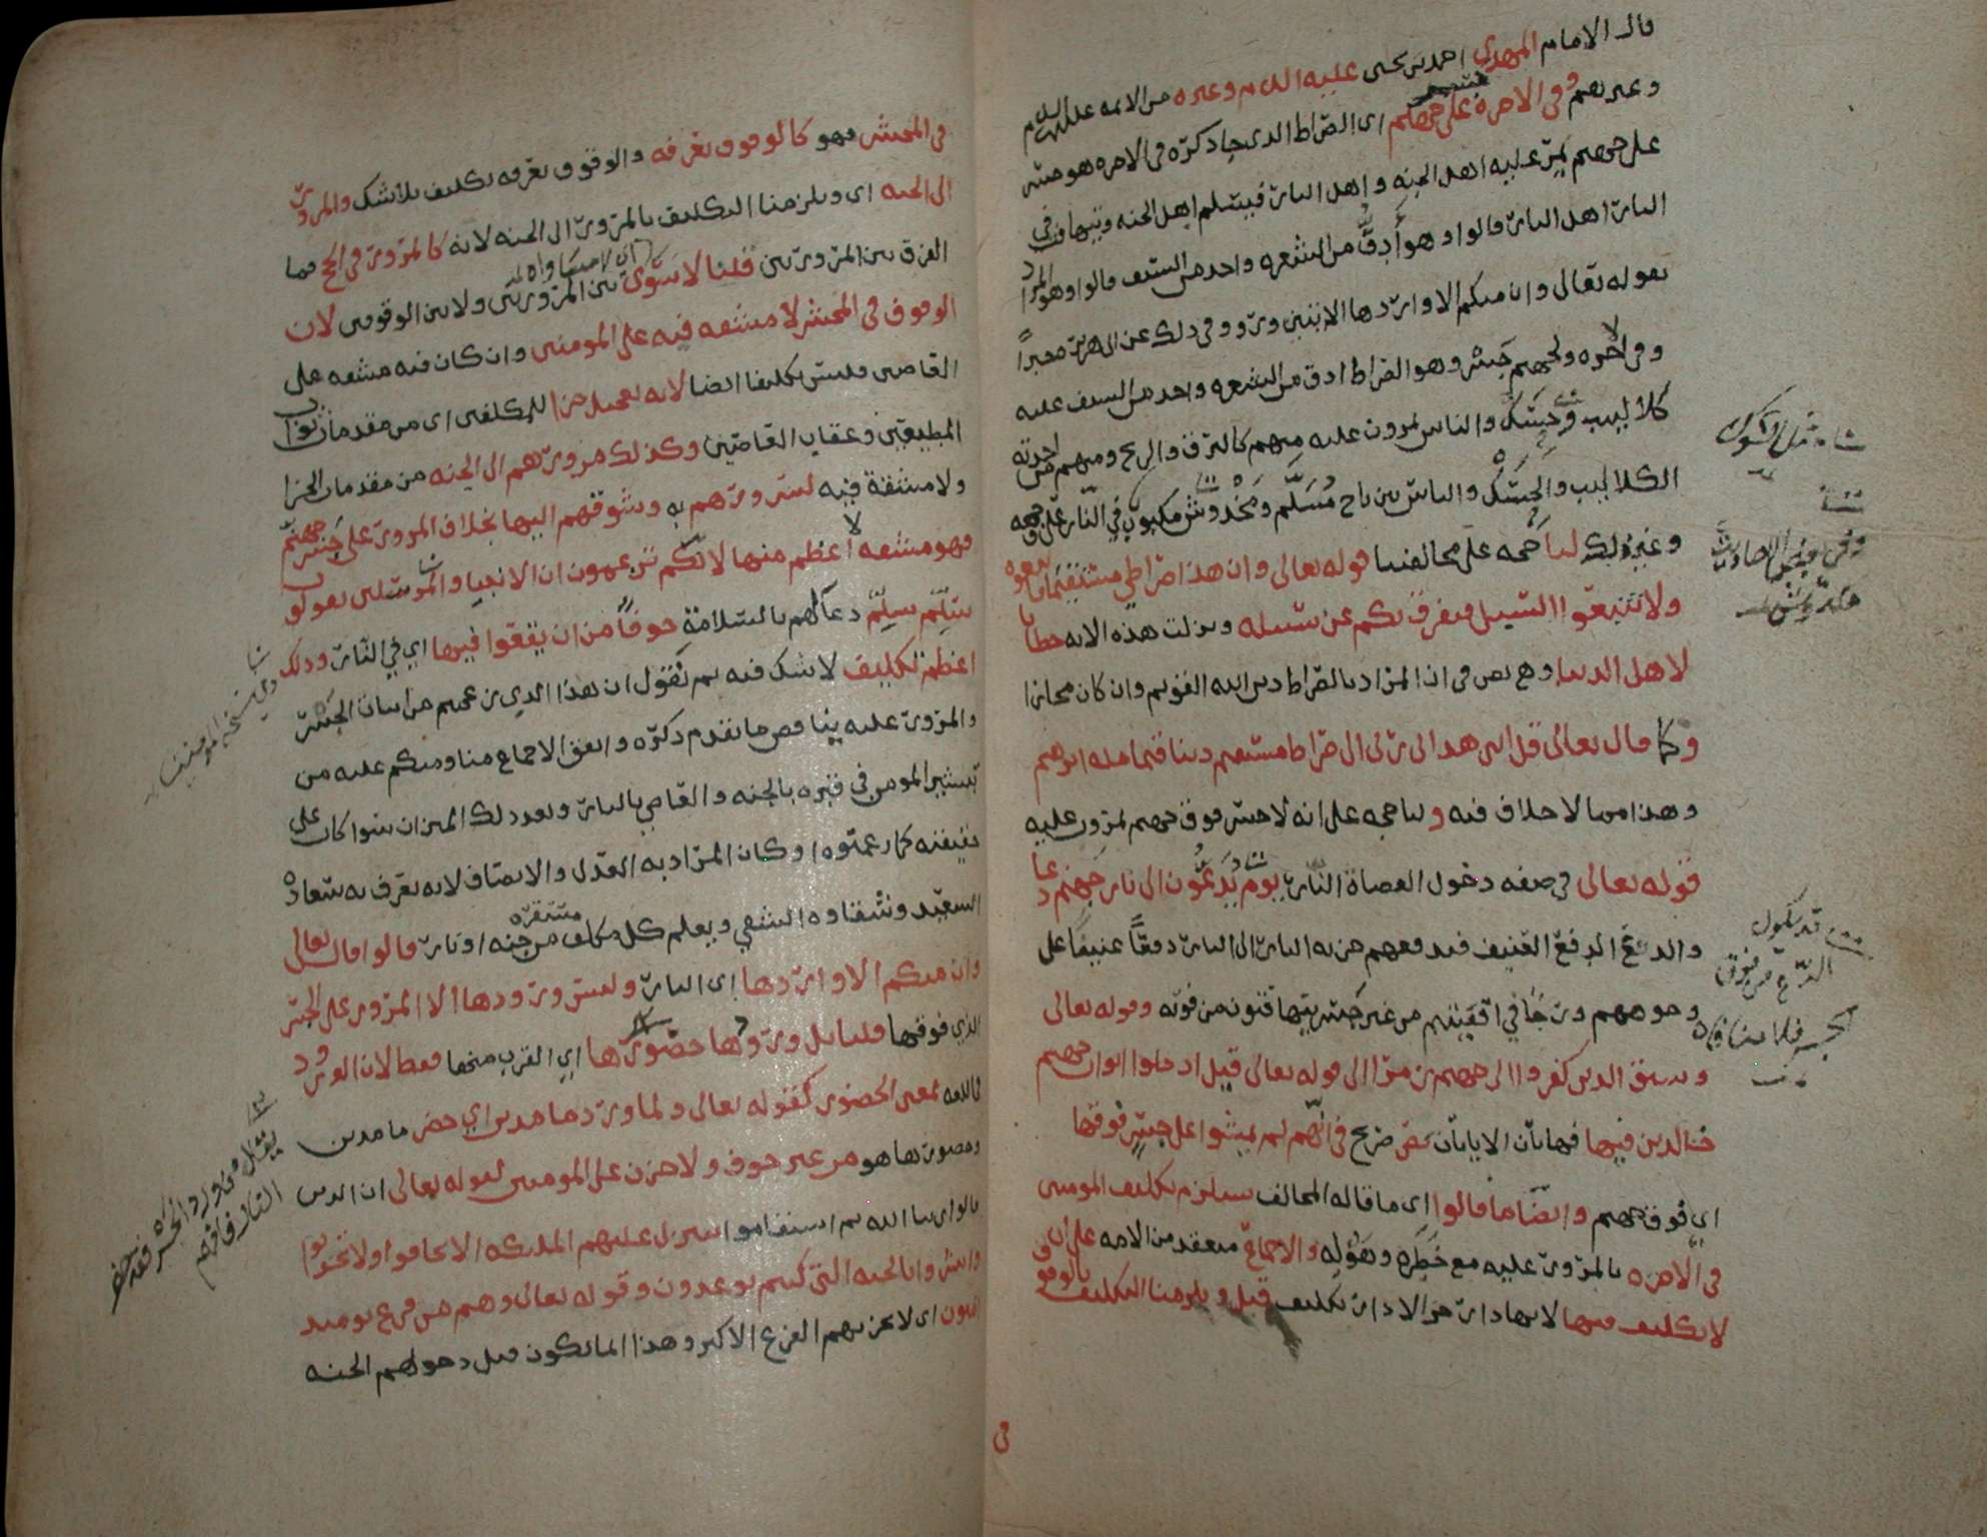 قال الامام المهدي احمد بن يحيى عليه السلام وغيره من الائمه عليهم السلام
وغيرهم وفي الاخرة على جهنم اى الصراط الدى جا ذكره في الاخره هو جسر
على جهنم يمر عليه اهل الجنه و اهل النار فيسلم اهل الجنه ويتهافت في
النار اهل النار قالوا وهو أدقُّ من الشعره واحد من السيف قالوا وهو المراد
بقوله تعالى وان منكم الا واردها الايتين وروو في ذلك عن ابي هريره خبرًا
وفي الاخره ولجهنم جسر وهو الصراط ادق من الشعره واحد من السيف عليه
كلاليب وحسك والناس يمرون عليه منهم كالبرق والريح ومنهم من اخذته
الكلاليب والحسك والناس بين ناج مُسَلَّم ومَخْدوش مكبوب في النار على وجهه
وغير ذلك لنا حجه على مخالفينا قوله تعالى وان هذا صراطي مستقيمًا فاتبعوه
ولا تتبعوا السبل فتفرق بكم عن سبيله ونزلت هذه الايه خطابا
لاهل الدنيا وهي نص في ان المراد بالصراط دين الله القويم وان كان مجازا
وكما قال تعالى قل انني هداني ربي الى صراط مستقيم دينا قيما مله ابرهيم
وهذا مما لا خلاف فيه ولنا حجه على انه لا جسر فوق جهنم يمرون عليه
قوله تعالى في صفه دخول العصاة النار يوم يُدَعُّون الى نار جهنم دعا
والدع الدفع العنيف فيدفعهم خزنه النار الى النار دفعًا عنيفًا على
وجوههم وزجًّا في اقفيتهم من غير جسر يتهافتون من فوقه وقوله تعالى
وسيق الدين كفروا الى جهنم زمرا الى قوله تعالى قيل ادخلوا ابواب جهنم
خالدين فيها فهاتان الايتان نص صريح في انهم لم يمشوا على جسر فوقها
اي فوق جهنم وايضًا ما قالوا اى ما قاله المخالف يستلزم تكليف المومنين
في الاخره بالمرور عليه مع خَطَرِه وهَوْلِه والاجماع منعقد من الامه على ان
لا تكليف فيها لانها دار جزا لا دار تكليف قيل ويلزمنا التكليف بالوقوف
في
في المحشر فهو كالوقوف بعرفه والوقوف بعرفه تكليف بلا شك والمرور
الى الجنه اى ويلزمنا التكليف بالمرور الى الجنه لانه كالمرور في الحج فما
الفرق بين المرورين قلنا لا سَوى بين المرورين ولا بين الوقوفين لان
الوقوف في المحشر لا مشقه فيه على المومنين وان كان فيه مشقه على
العاصي فليس تكليفا ايضا لانه تعجيل جزا للمكلفين اى من مقدمات ثواب
المطيعين وعقاب العاصين وكذلك مرورهم الى الجنه من مقدمات الجزا
ولا مشقة فيه لسرورهم به وشوقهم اليها بخلاف المرور على جسر جهنم
فهو مشقه لا اعظم منها لانكم تزعمون ان الانبيا والمرسلين يقولون
سَلِّم سَلِّم دعا لهم بالسلامة خوفًا من ان يقعوا فيها اي في النار وذلك
اعظم تكليف لا شك فيه ثم نقول ان هذا الدي زعمتم من اثبات الجسر
والمرور عليه يناقض ما تقدم ذكره واتفق الاجماع منا ومنكم عليه من
تبشير المومن في قبره بالجنه والعاصي بالنار وبعد ذلك الميزان سوا كان على
حقيقته كما زعمتوه او كان المراد به العدل والانصاف لانه يعرف به سعادة
السعيد وشقاوه الشقي ويعلم كل مكلف مستقره من جنه او نار قالوا قال تعالى
وان منكم الا واردها اى النار وليس ورودها الا المرور على الجسر
الذي فوقها قلنا بل ورودها حضورها اي القرب منها فقط لان الورود
في اللغه بمعنى الحضور كقوله تعالى ولما ورد ما مدين اي حضر ما مدين
وحضورها هو من غير خوف ولا حزن على المومنين لقوله تعالى ان الدين
قالوا ربنا الله ثم استقاموا تتنزل عليهم الملائكه الا تخافوا ولا تحزنوا
وابشروا بالجنه التي كنتم توعدون وقوله تعالى وهم من فزع يوميد
امنون اى لا يحزنهم الفزع الاكبر وهذا انما يكون قبل دخولهم الجنه